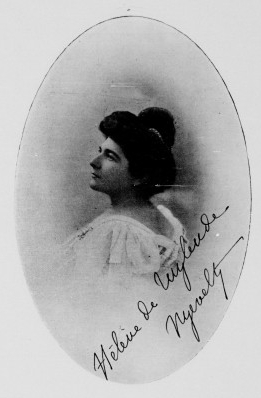 Hélène de Zuylen de
Nyevelt